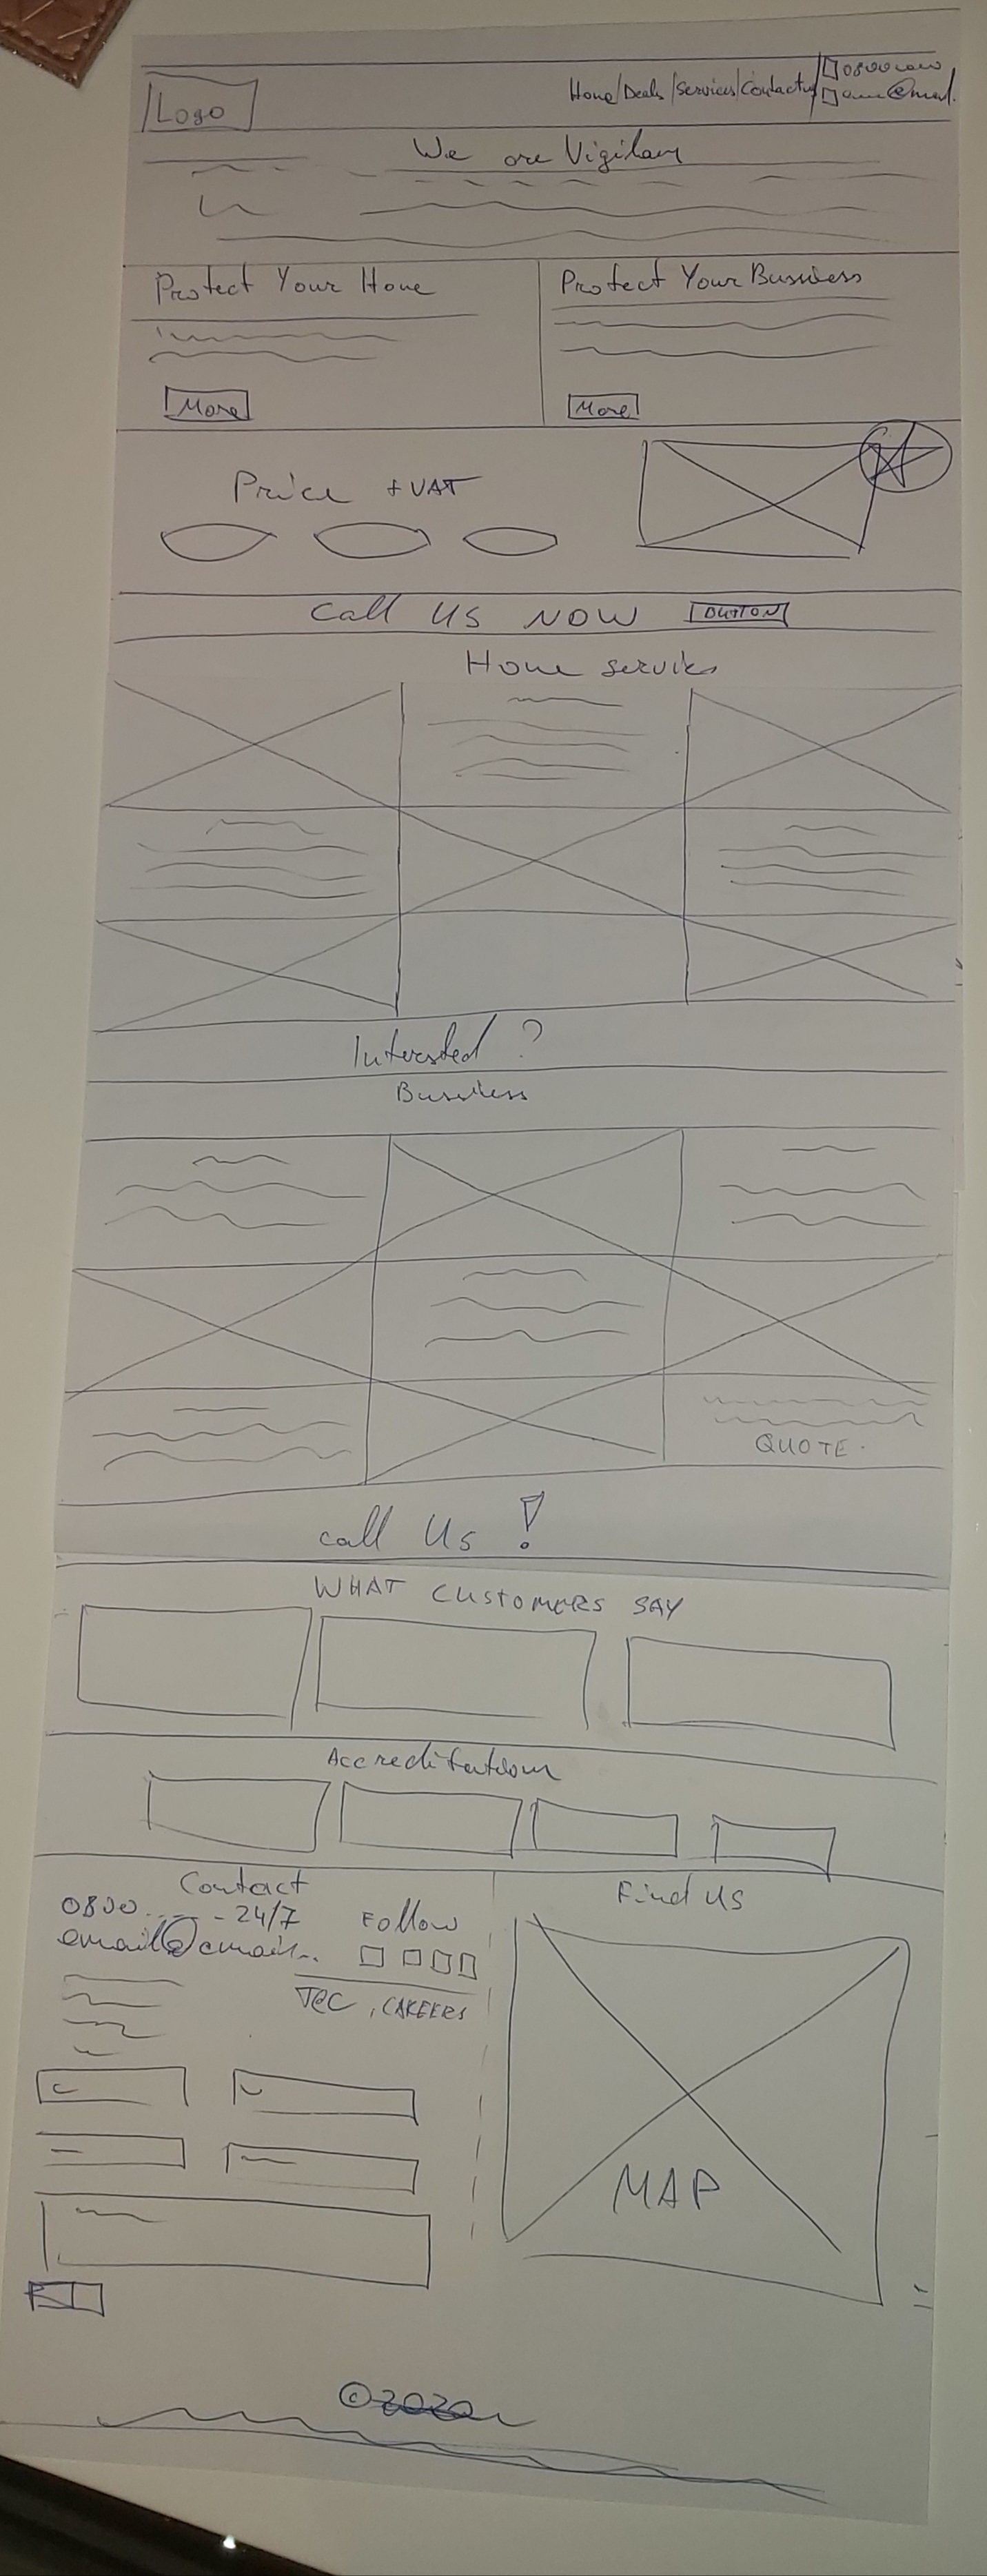 Logo
Home/Deals/Services/Contact us
0800
@mail.
We are Vigilam
Protect Your Home
Protect Your Business
More
More
Price + VAT
Call US NOW BUTTON
Home services
Interested ?
Business
QUOTE.
call Us !
WHAT CUSTOMERS SAY
Accreditation
Contact
0800..... - 24/7
email@email..
Follow
T&C, CAREERS
Find us
MAP
© 2020